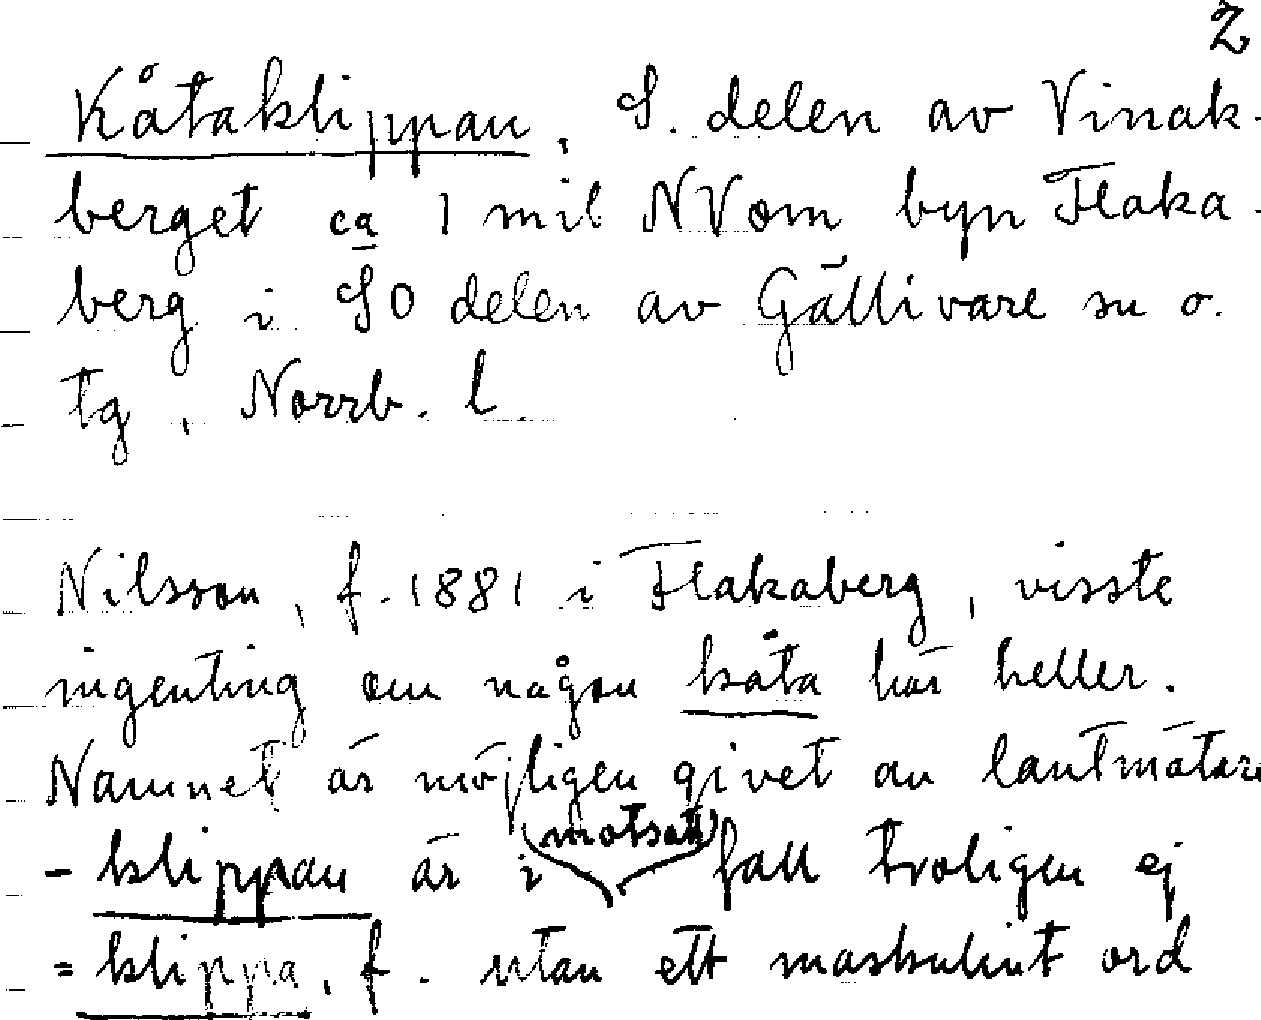 2
Kåtaklippan, S. delen av Vinak-
berget ca 1 mil NV om byn Flaka-
berg i SO delen av Gällivare sn o.
tg, Norrb. l.
Nilsson, f. 1881 i Flakaberg, visste
ingenting om någon kåta här heller.
Namnet är möjligen givet av lantmätare
(motsatt)
- klippan är i fall troligen ej
= klippa, f. utan ett maskulint ord